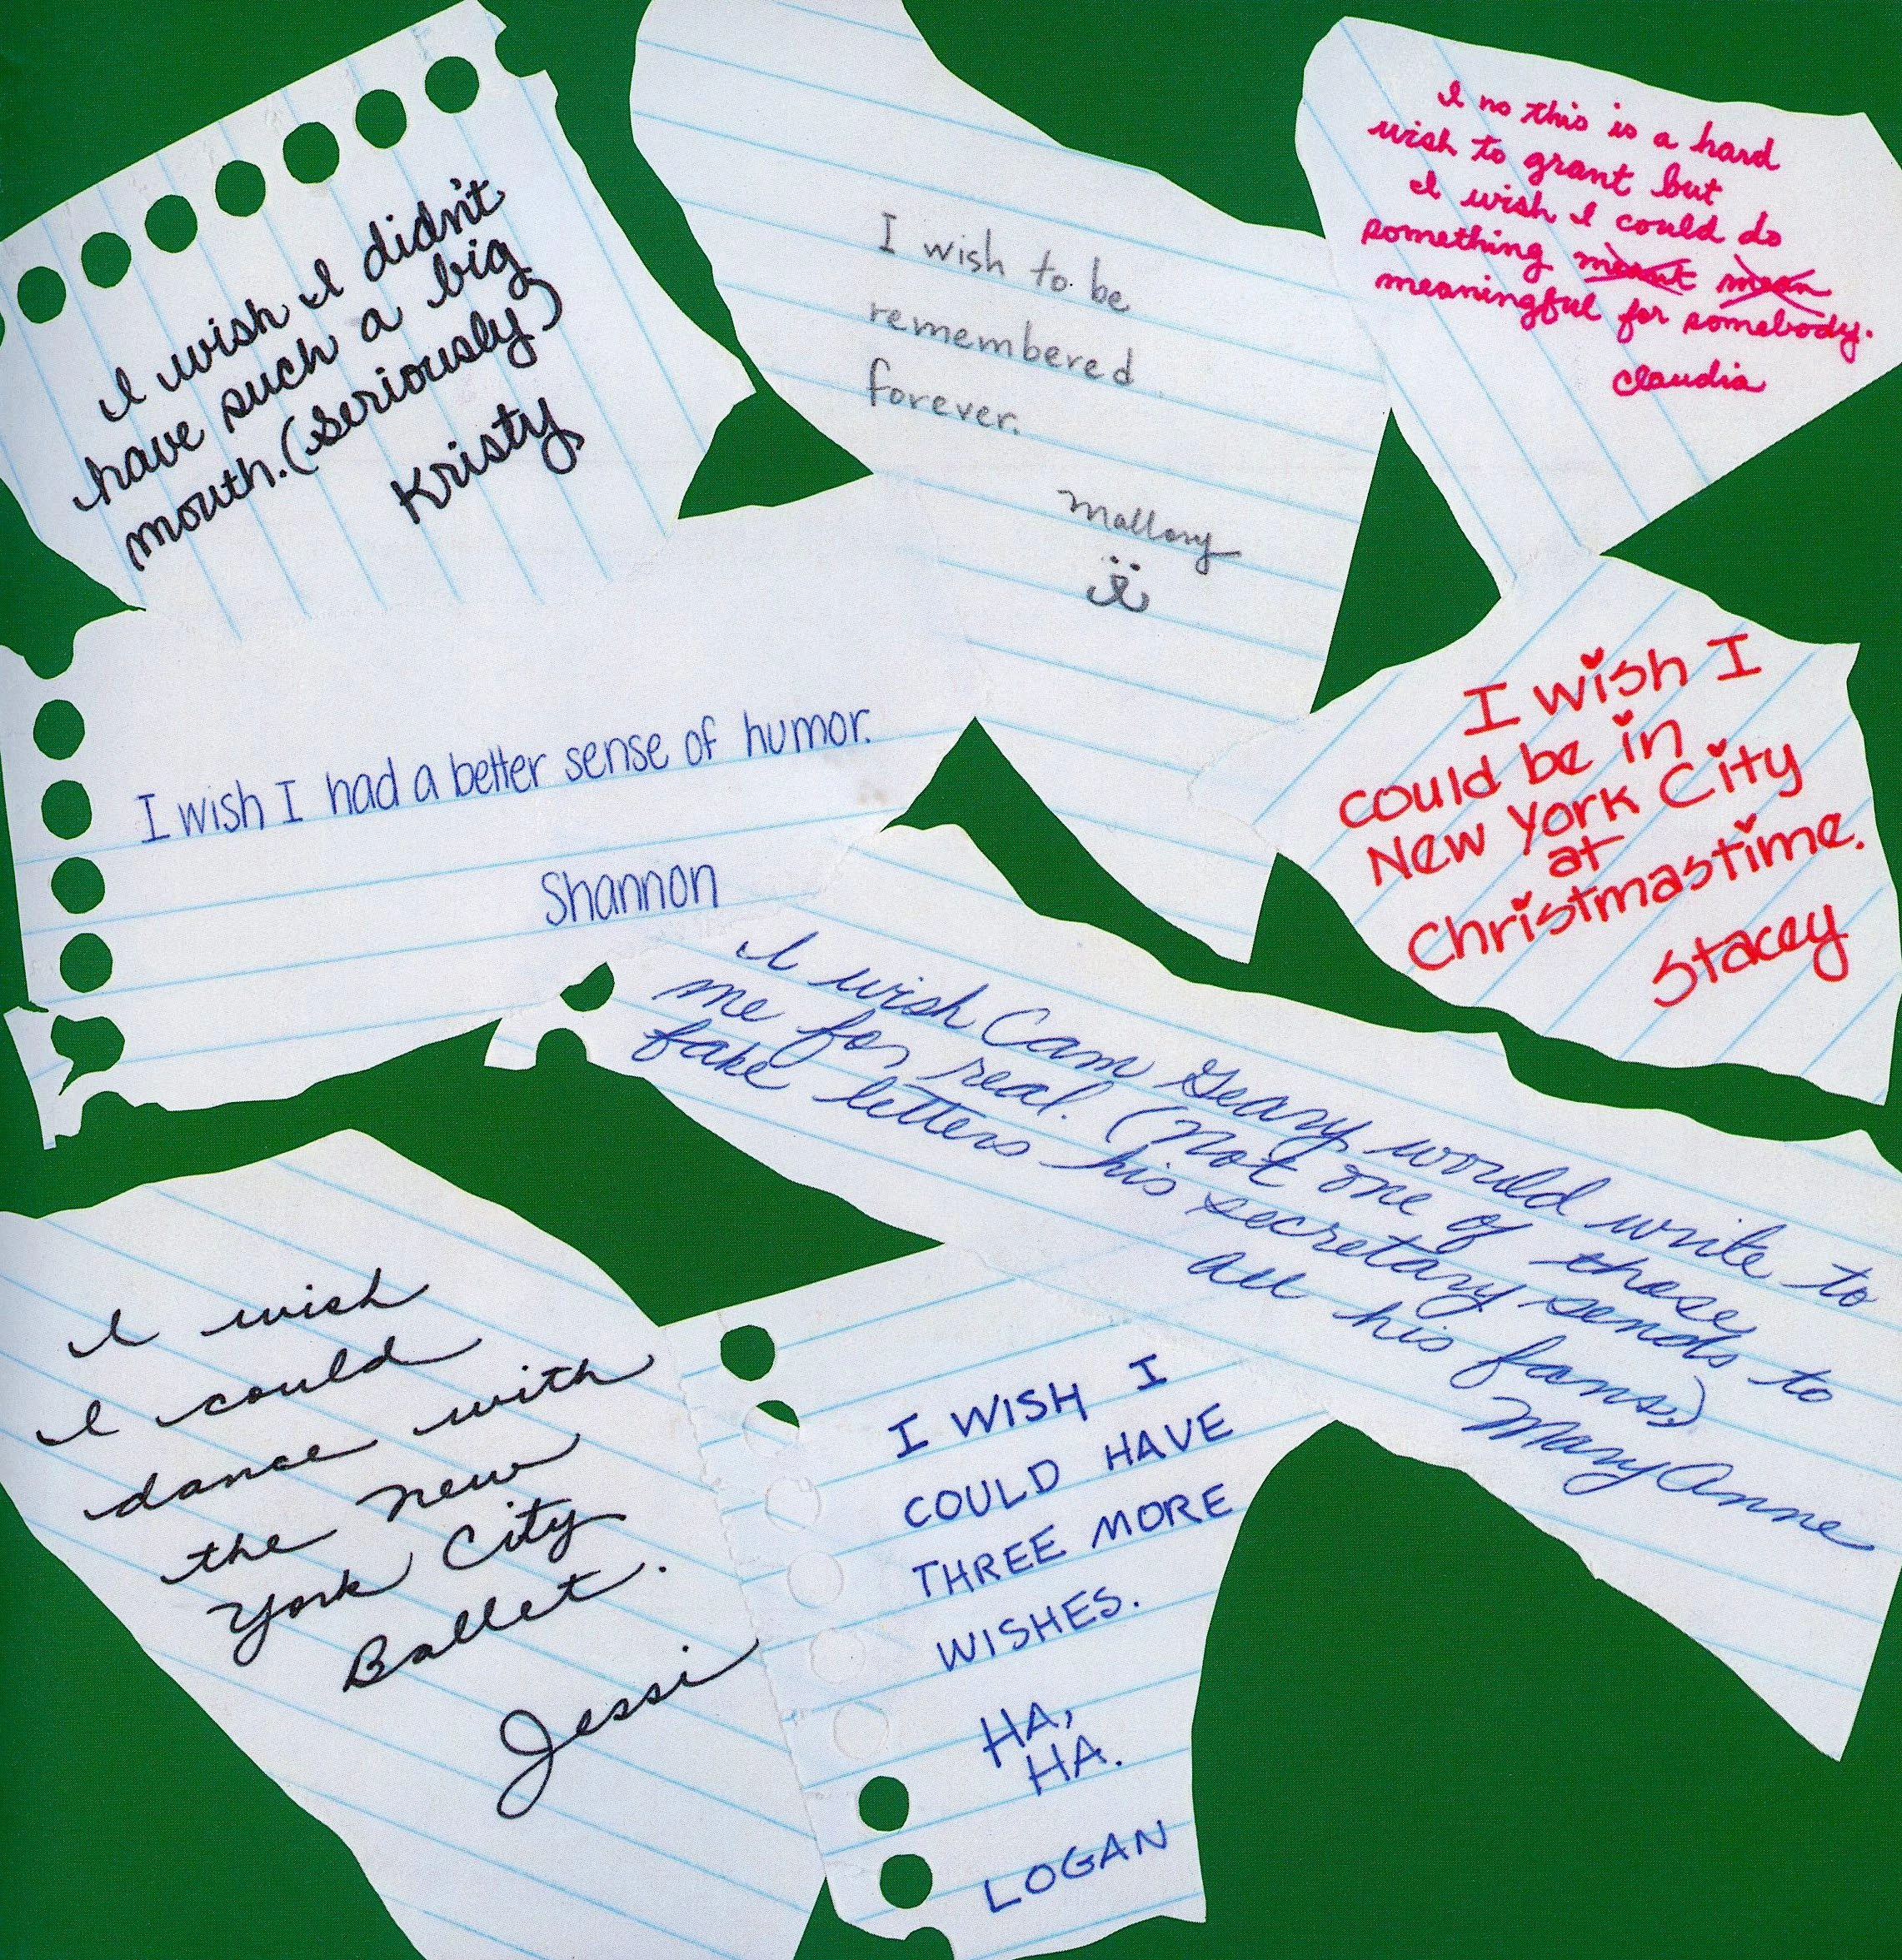 I wish I didn't
have such a big
mouth. (Seriously)
Kristy
I wish to be
remembered
forever.
Mallory
I no this is a hard
wish to grant but
I wish I could do
something meant mean
meaningful for somebody.
Claudia
I wish I had a better sense of humor.
Shannon
I wish I
could be in
New York City
at
Christmastime.
Stacey
I wish Cam Geary would write to
me for real. (Not one of those
fake letters his secretary sends to
all his fans.)
Mary Anne
I wish
I could
dance with
the New
York City
Ballet.
Jessi
I WISH I
COULD HAVE
THREE MORE
WISHES.
HA,
HA.
LOGAN